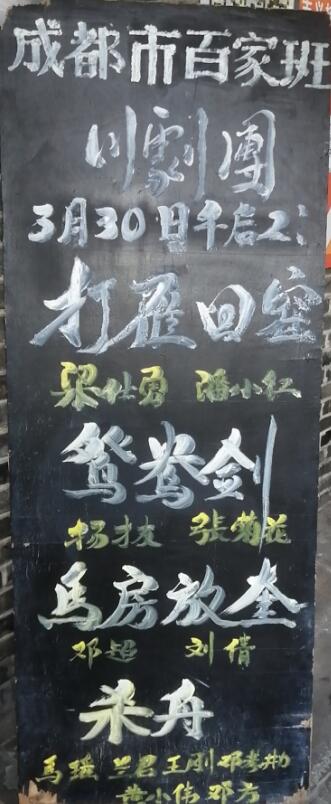 成都市百家班
川劇團
3月30日午后2:
打雁回窑
梁仕勇 潘小红
鸳鸯剑
杨才友 張菊花
馬房放奎
邓超 刘倩
杀舟
馬瑶 兰君 王刚 邓孝勛
黄小伟 邓方